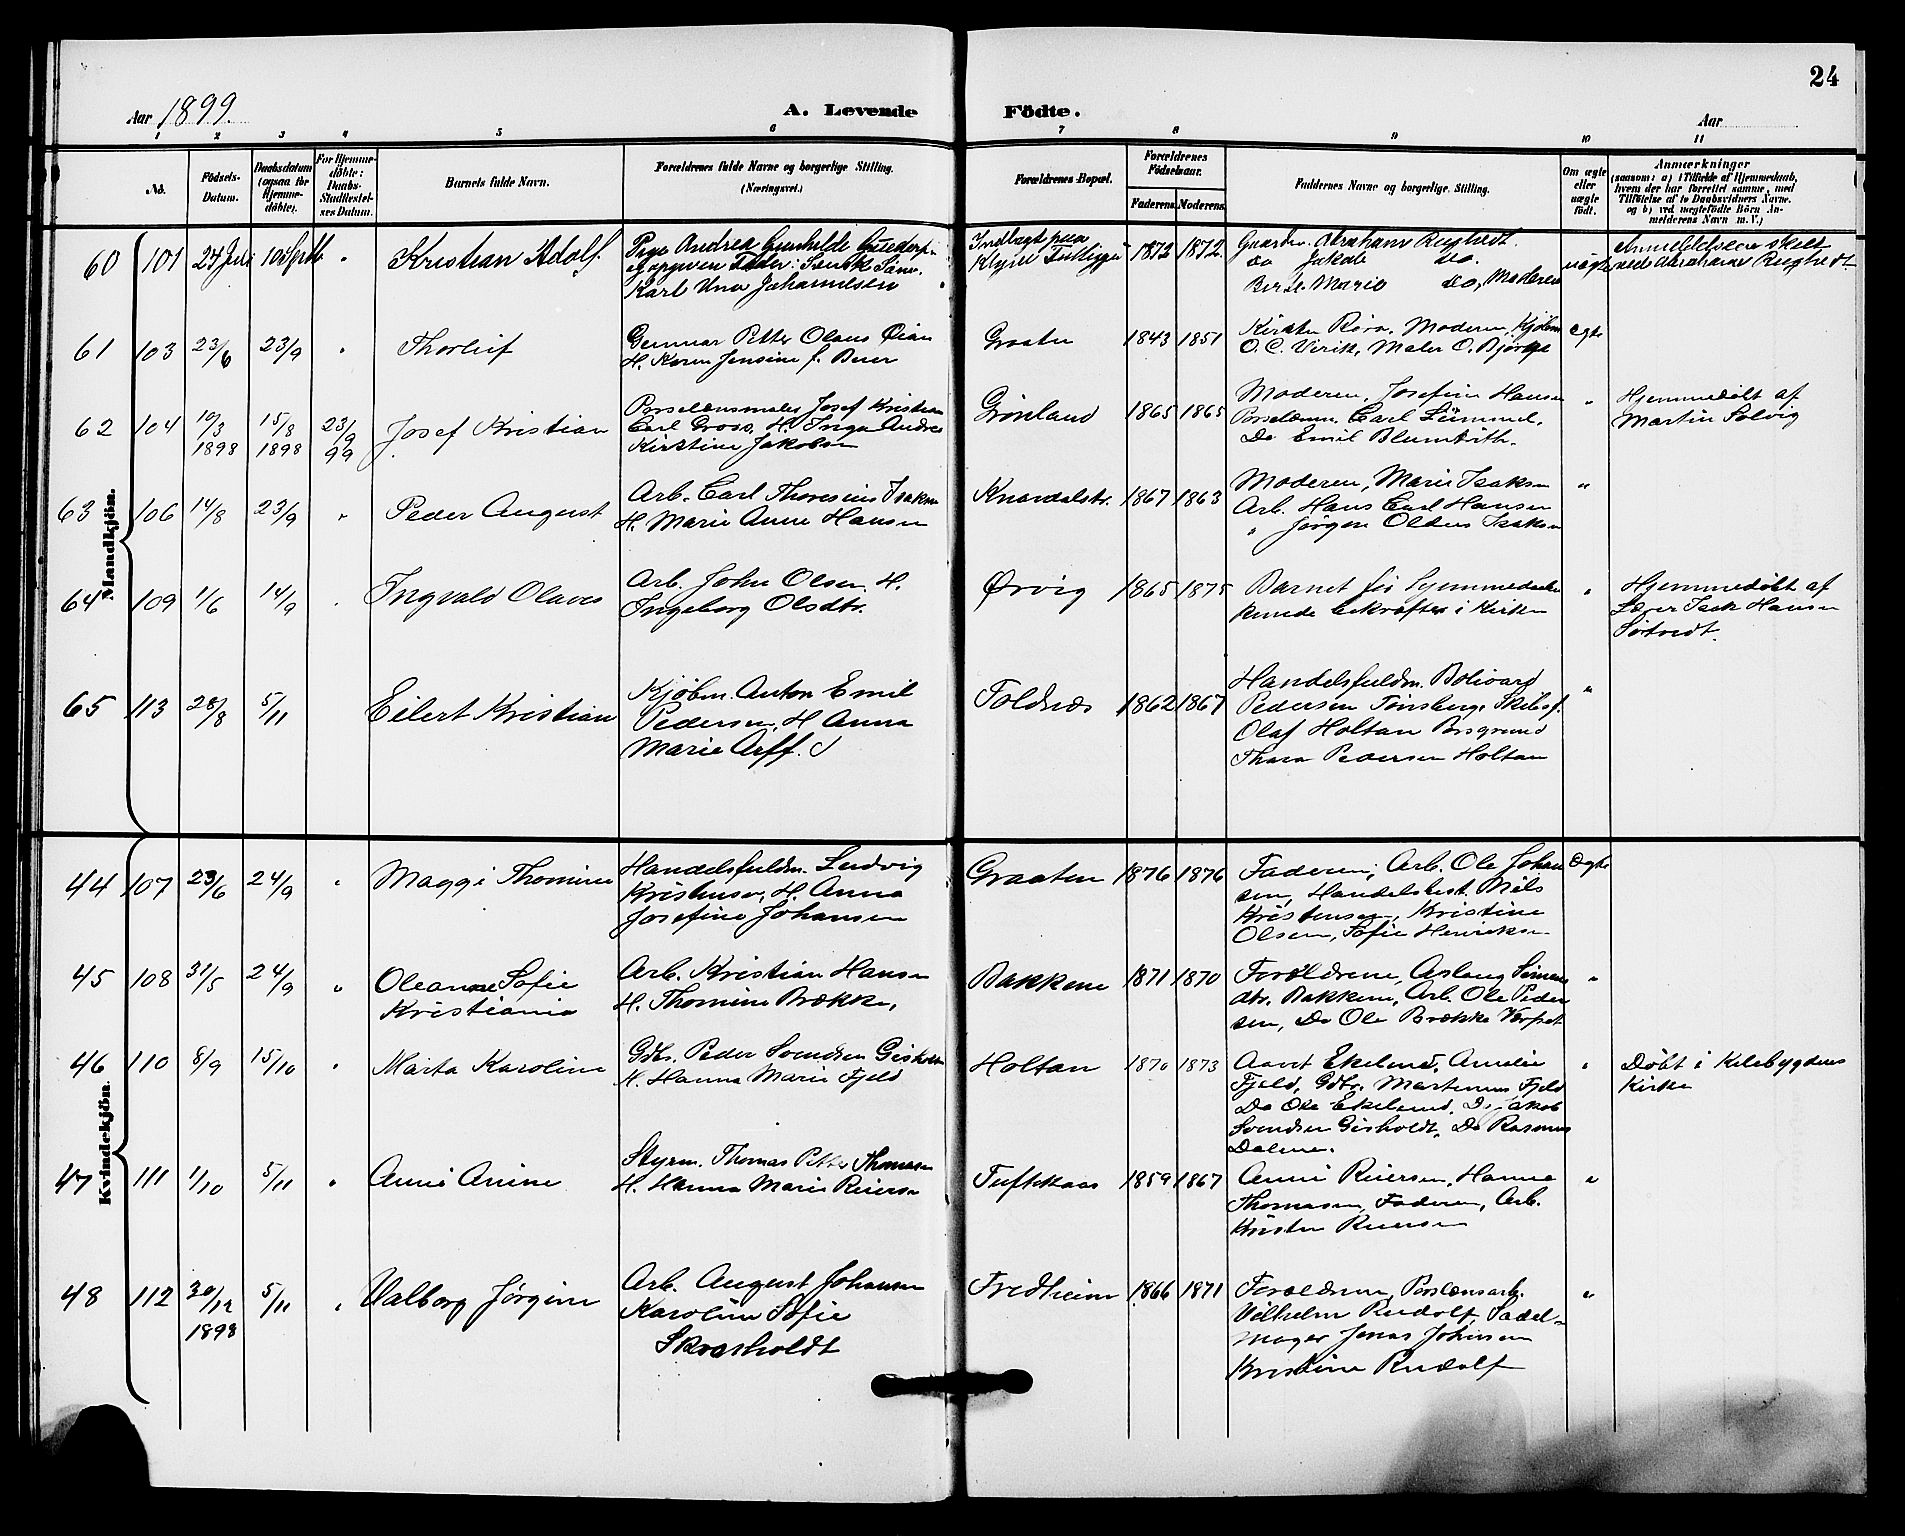 24
Aar 1899.
A. Levende Födte.
Aar
1 2 3 4 5 6 7 8 9 10 11
No.
Födsels-Datum.
Daabsdatum (ogsaa for Hjemme-döbte).
For Hjemme-döbte: Daabs-Stadfæstel-ses Datum.
Barnets fulde Navn.
Forældrenes fulde Navne og borgerlige Stilling. (Næringsvei.)
Forældrenes Bopæl.
Forældrenes Födselsaar.
Faderens. Moderens.
Faddernes Navne og borgerlige Stilling.
Om ægte eller uægte födt.
Anmærkninger
(saasom: a) i Tilfælde af Hjemmedaab,
hvem der har forrettet samme, med
Tilföielse af to Daabsvidners Navne.
og b) ved uegtefödte Börn An-
melderens Navn m. V.)
Mandkjön.
60 101 24 Juli 10 Septb " Kristian Adolf.
Pige Andrea Gunhilde
opgiven Fader: Svensk
Karl Uno Johannesen
Indlagt paa
1872 1872
Gaardm. Abraham Rugtvedt.
Do Jakob do.
Berte Marie Do, Moderen
uægte
ved Abraham Rugtvedt
61 103 23/6 23/9 " Thorleif
Gunnar Petter Olaus Øian
H. Karen Jensine f. Beier
Graaten 1843 1851
Kirsten Röra, Moderen, Kjöbm
O. C. Virik, Maler O. Björge
egte
62 104 10/3 1898 15/8 1898 23/9 99 Josef Kristian
Porselænsmaler Josef Kristian
Carl Gross, H. Inga Andrea
Kirstine Jakobsen
Grönland 1865 1865
Moderen, Josefine Hansen
Porselænm. Carl Lümmel,
Do Emil Blumtrith.
"
Hjemmedöbt af
Martin Solvig
63 106 14/8 23/9 " Peder August
Arb. Carl Thoresius Isaksen
H. Marie Anne Hansen
Knardalstr. 1867 1863
Moderen, Marie Isaksen
Arb. Hans Carl Hansen
" Jörgen Olaus Isaksen
"
64 109 1/6 14/9 " Ingvald Olaves
Arb. John Olsen H.
Ingeborg Olsdtr.
Ørvig 1865 1875
Barnet för Hjemmedaaben
kunde bekræftes i Kirken
"
Hjemmedöbt af
Lærer Isak Hansen
Sötvedt.
65 113 28/8 5/11 Eilert Kristian
Kjöbm. Anton Emil
Pedersen, H Anna
Marie Arff.
Foldnæs 1862 1867
Handelsfuldm. Bolivard
Pedersen Tönsberg, Skibsf.
Olaf Holtan Porsgrund
Thora Pedersen Holtan
"
Kvindekjön.
44 107 23/6 24/9 " Maggi Thomine
Handelsfuldm. Ludvig
Kristensen, H. Anna
Josefine Johansen
Graaten 1876 1876
Faderen, Arb. Ole Johan
sen, Handelsbest. Niels
Kristensen, Kristine
Olsen, Sofie Henriksen
Ægte
45 108 31/5 24/9 " Oleanne Sofie
Kristiania
Arb. Kristian Hansen
H. Thomine Brække,
Bakkene 1871 1870
Forældrene, Aslaug Simens
dtr. Bakkene, Arb. Ole Peder
sen, Do Ole Brække
"
46 110 8/9 15/10 " Marta Karoline
Gdbr. Peder Svendsen Gisholt
H. Hanna Marie Fjeld
Holtan 1870 1873
Aaret Ekelund, Amelie
Fjeld, Gdbr. Martinus Fjeld
Do Ole Ekelund, Do Jakob
Svendsen Gisholdt, Do Rasmus
Dalene.
"
Döbt i Eidsbygdens
Kirke
47 111 1/10 5/11 " Anne Anine
Styrm. Thomas Petter Thomasen
H. Hanna Marie Reiersen
Tuftekaas 1859 1867
Anne Reiersen, Hanna
Thomasen, Faderen, Arb.
Kristen Reiersen
"
48 112 30/12 1898 5/11 " Valborg Jörgine
Arb. August Johansen
Karoline Sofie
Skrasholdt
Fredheim 1866 1871
Forældrene, Porslænsarb.
Vilhelm Rudolf, Sadel-
mager Jonas Johnsen
Kristine Rudolf
"